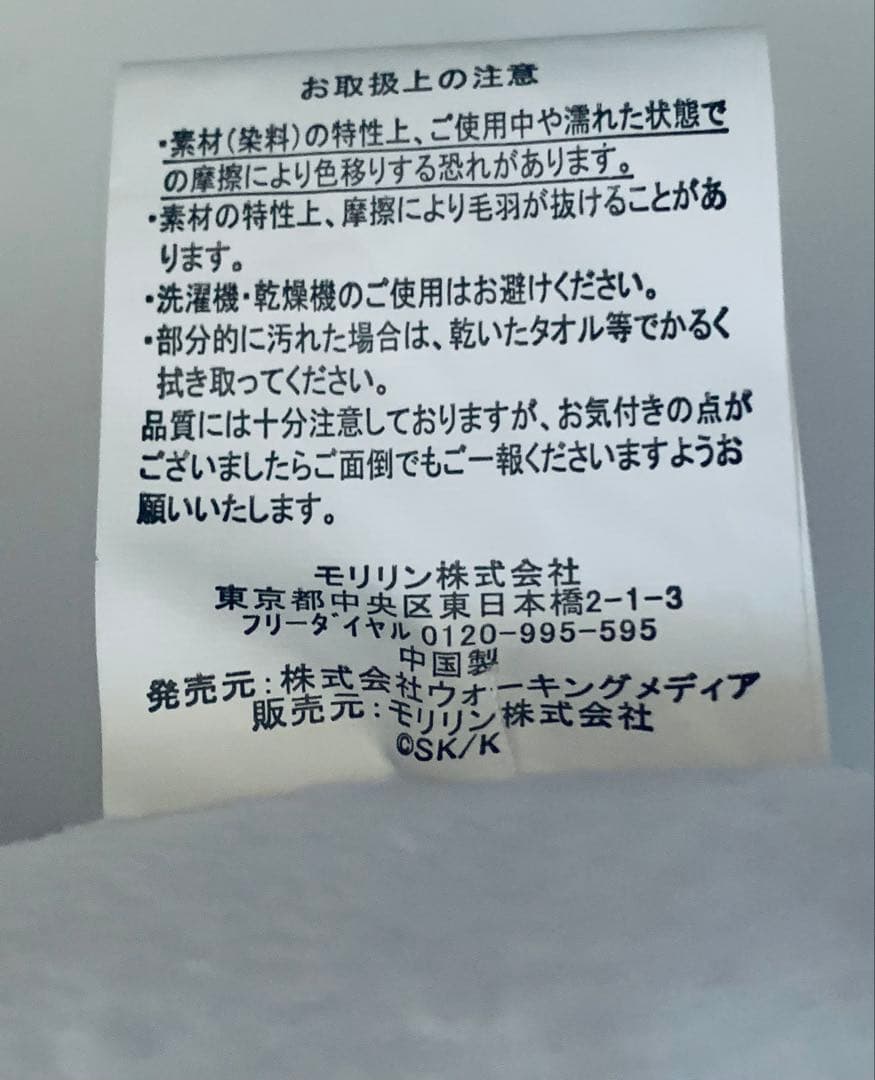 お取扱上の注意
・素材(染料)の特性上、ご使用中や濡れた状態で
の摩擦により色移りする恐れがあります。
・素材の特性上、摩擦により毛羽が抜けることがあ
ります。
・洗濯機・乾燥機のご使用はお避けください。
・部分的に汚れた場合は、乾いたタオル等でかるく
拭き取ってください。
品質には十分注意しておりますが、お気付きの点が
ございましたらご面倒でもご一報くださいますようお
願いいたします。
モリリン株式会社
東京都中央区東日本橋2-1-3
フリーダイヤル 0120-995-595
中国製
発売元:株式会社ウォーキングメディア
販売元:モリリン株式会社
©SK/K